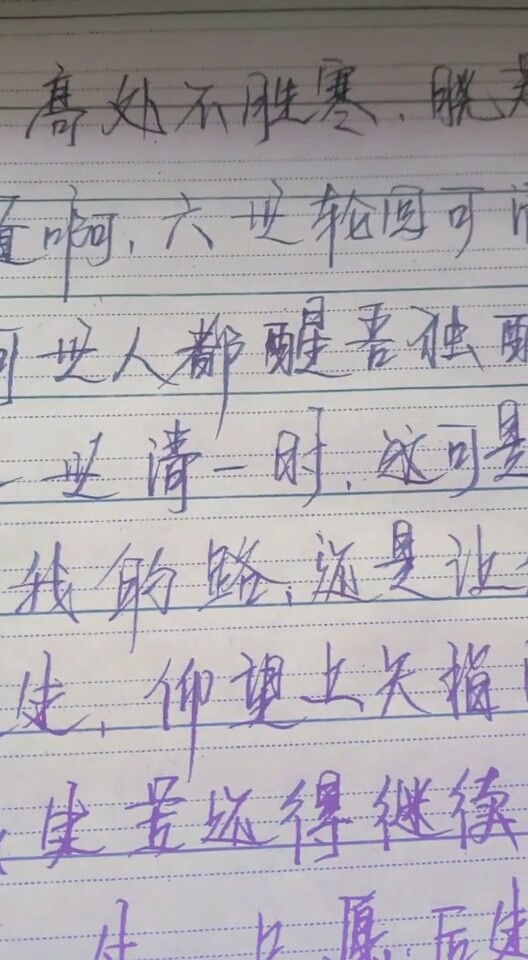 高处不胜寒，晓
啊，六世轮回可
世人都醒吾独
世清一时，这可是
我的路，还是让
走，仰望上天指
走苦还得继续
只愿后